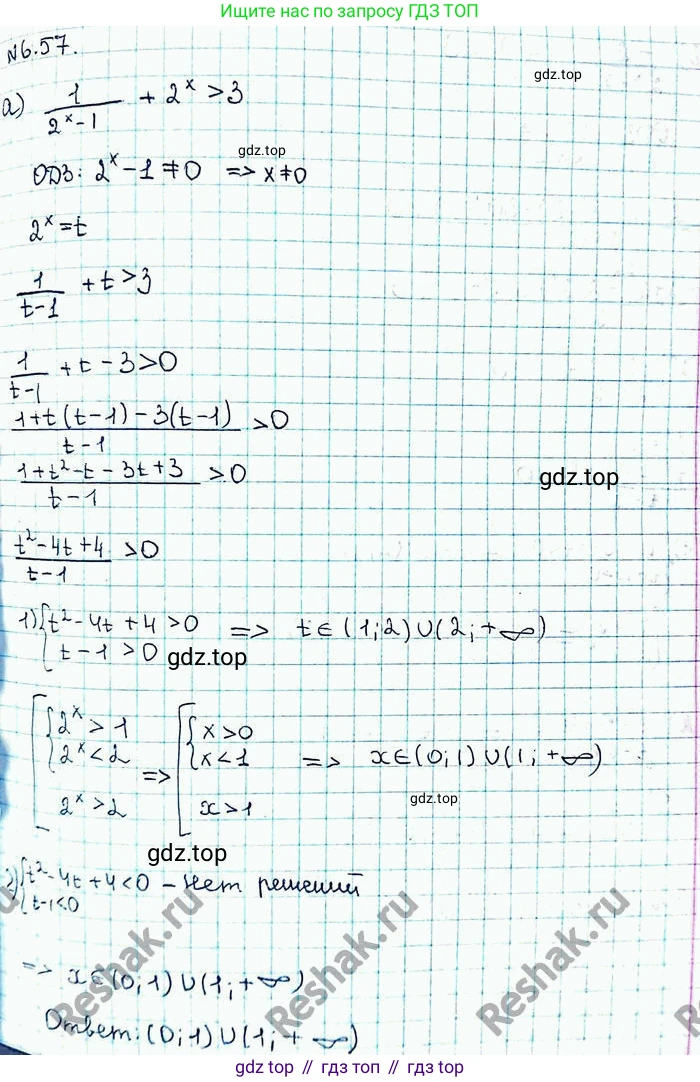 Ищите нас по запросу ГДЗ ТОП
№6.57.
gdz.top
а) 1/(2^x - 1) + 2^x > 3
gdz.top
ОДЗ: 2^x - 1 ≠ 0 => x ≠ 0
2^x = t
1/(t-1) + t > 3
1/(t-1) + t - 3 > 0
(1+t(t-1)-3(t-1))/(t-1) > 0
(1+t²-t-3t+3)/(t-1) > 0
gdz.top
(t²-4t+4)/(t-1) > 0
1) { t²-4t+4>0 => t∈(1;2)∪(2;+∞)
t-1>0
gdz.top
[ { 2^x > 1 => [ { x>0 => x∈(0;1)∪(1;+∞)
2^x < 2 x<1
2^x > 2 x>1
gdz.top
gdz.top
2) { t²-4t+4<0 - нет решений
t-1<0
=> x∈(0;1)∪(1;+∞)
Ответ: (0;1)∪(1;+∞)
Reshak.ru
Reshak.ru
Reshak.ru
gdz.top // гдз.топ // gdz.top